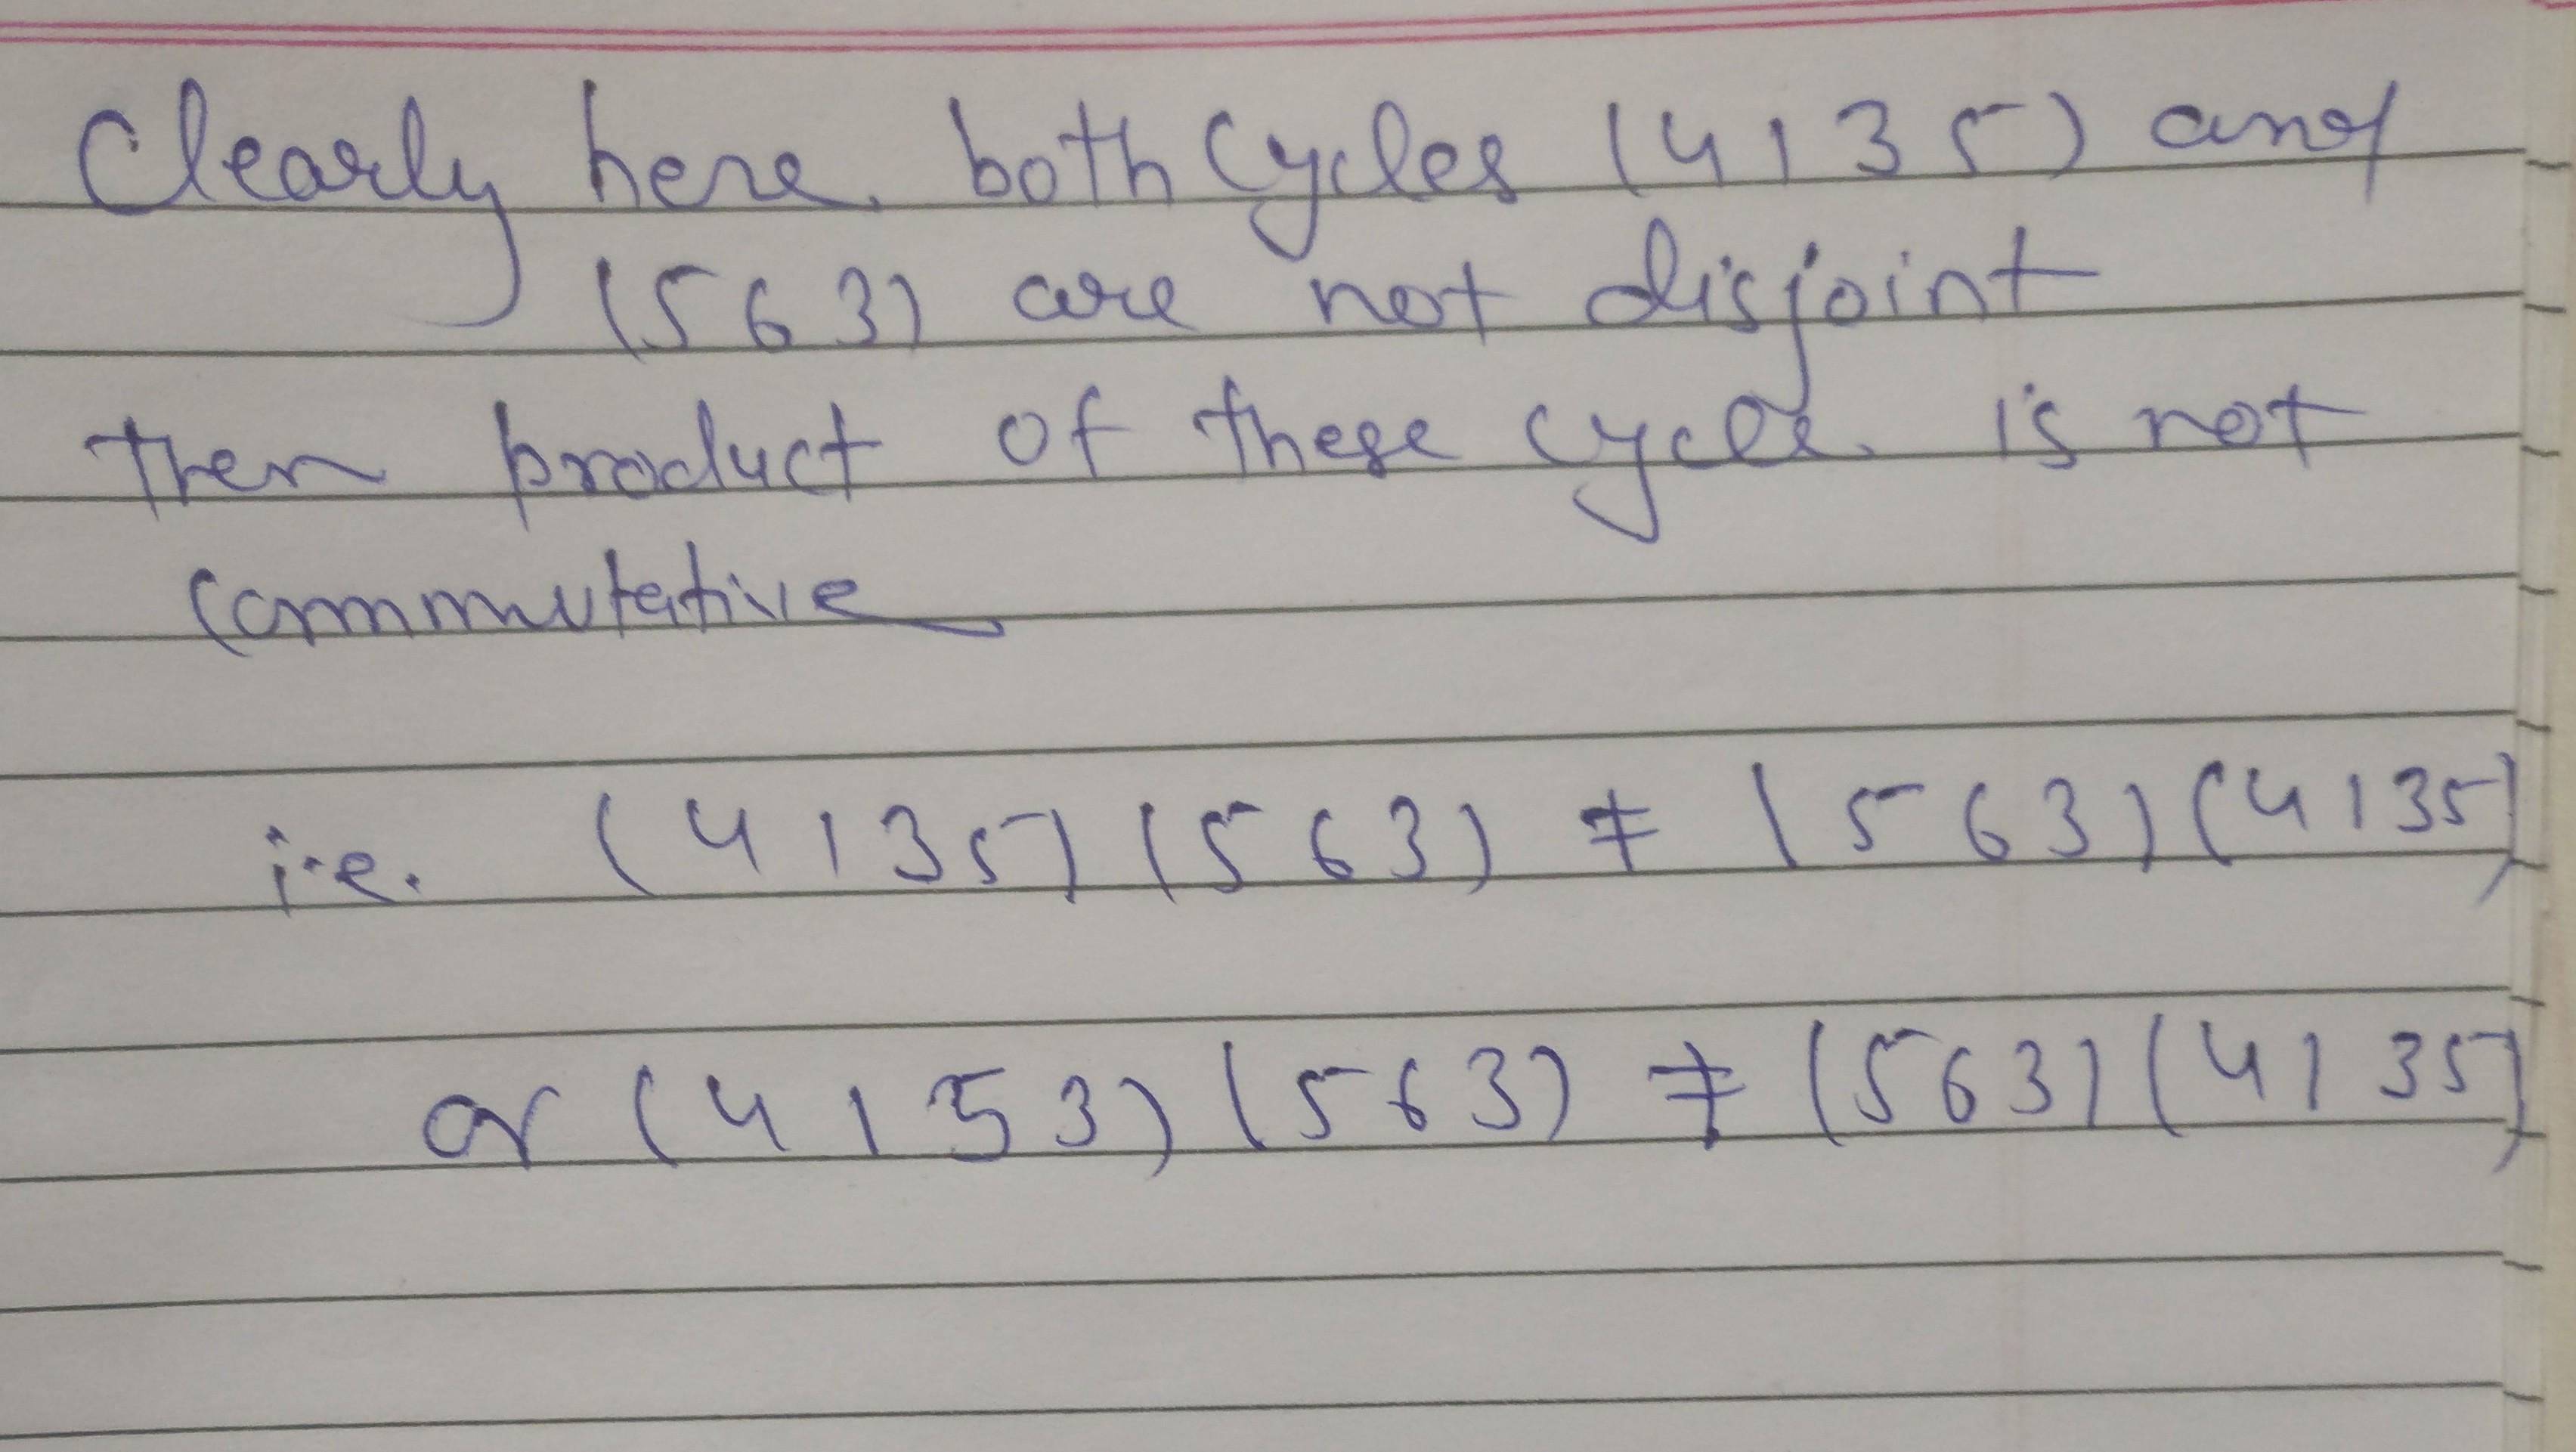 Clearly here both cycles (4 1 3 5) and
(5 6 3) are not disjoint
then product of these cycle is not
commutative
i.e. (4 1 3 5) (5 6 3) ≠ (5 6 3) (4 1 3 5)
or (4 1 5 3) (5 6 3) ≠ (5 6 3) (4 1 3 5)